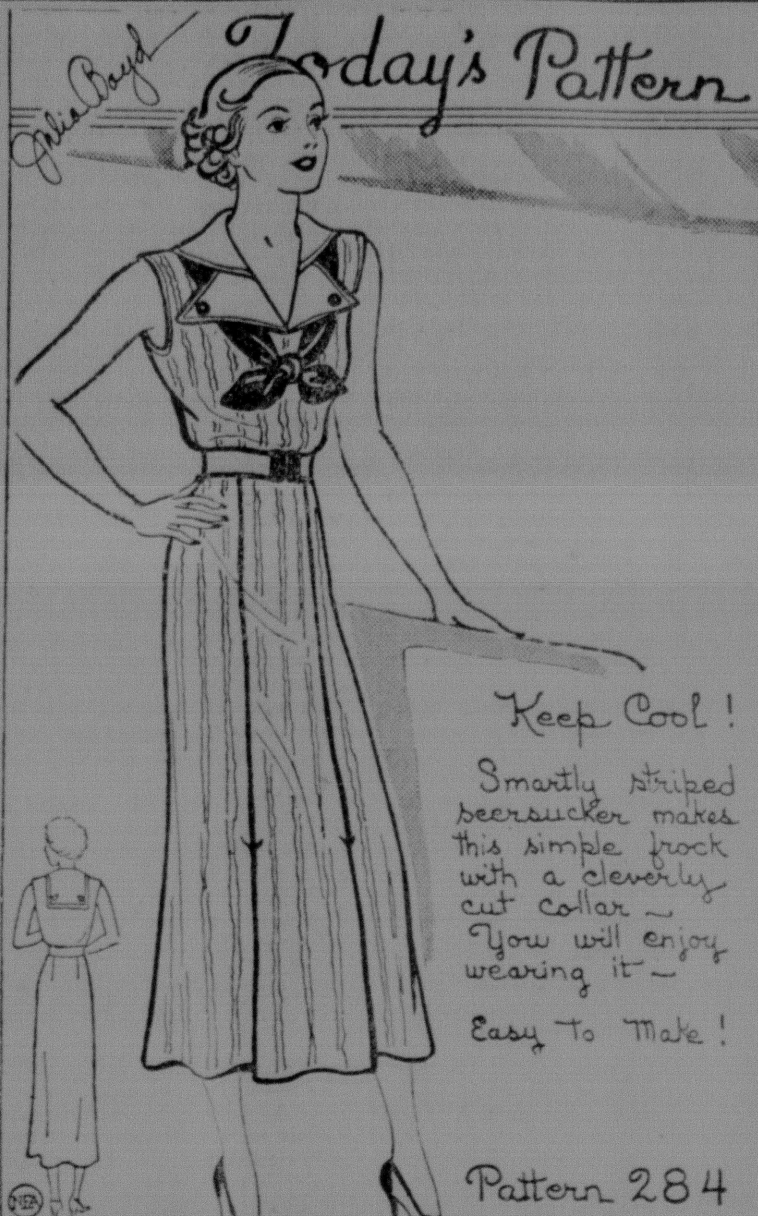 Julia Boyd
Today's Pattern
Keep Cool!
Smartly striped
seersucker makes
this simple frock
with a cleverly
cut collar —
You will enjoy
wearing it —
Easy to Make!
Pattern 284
NEA